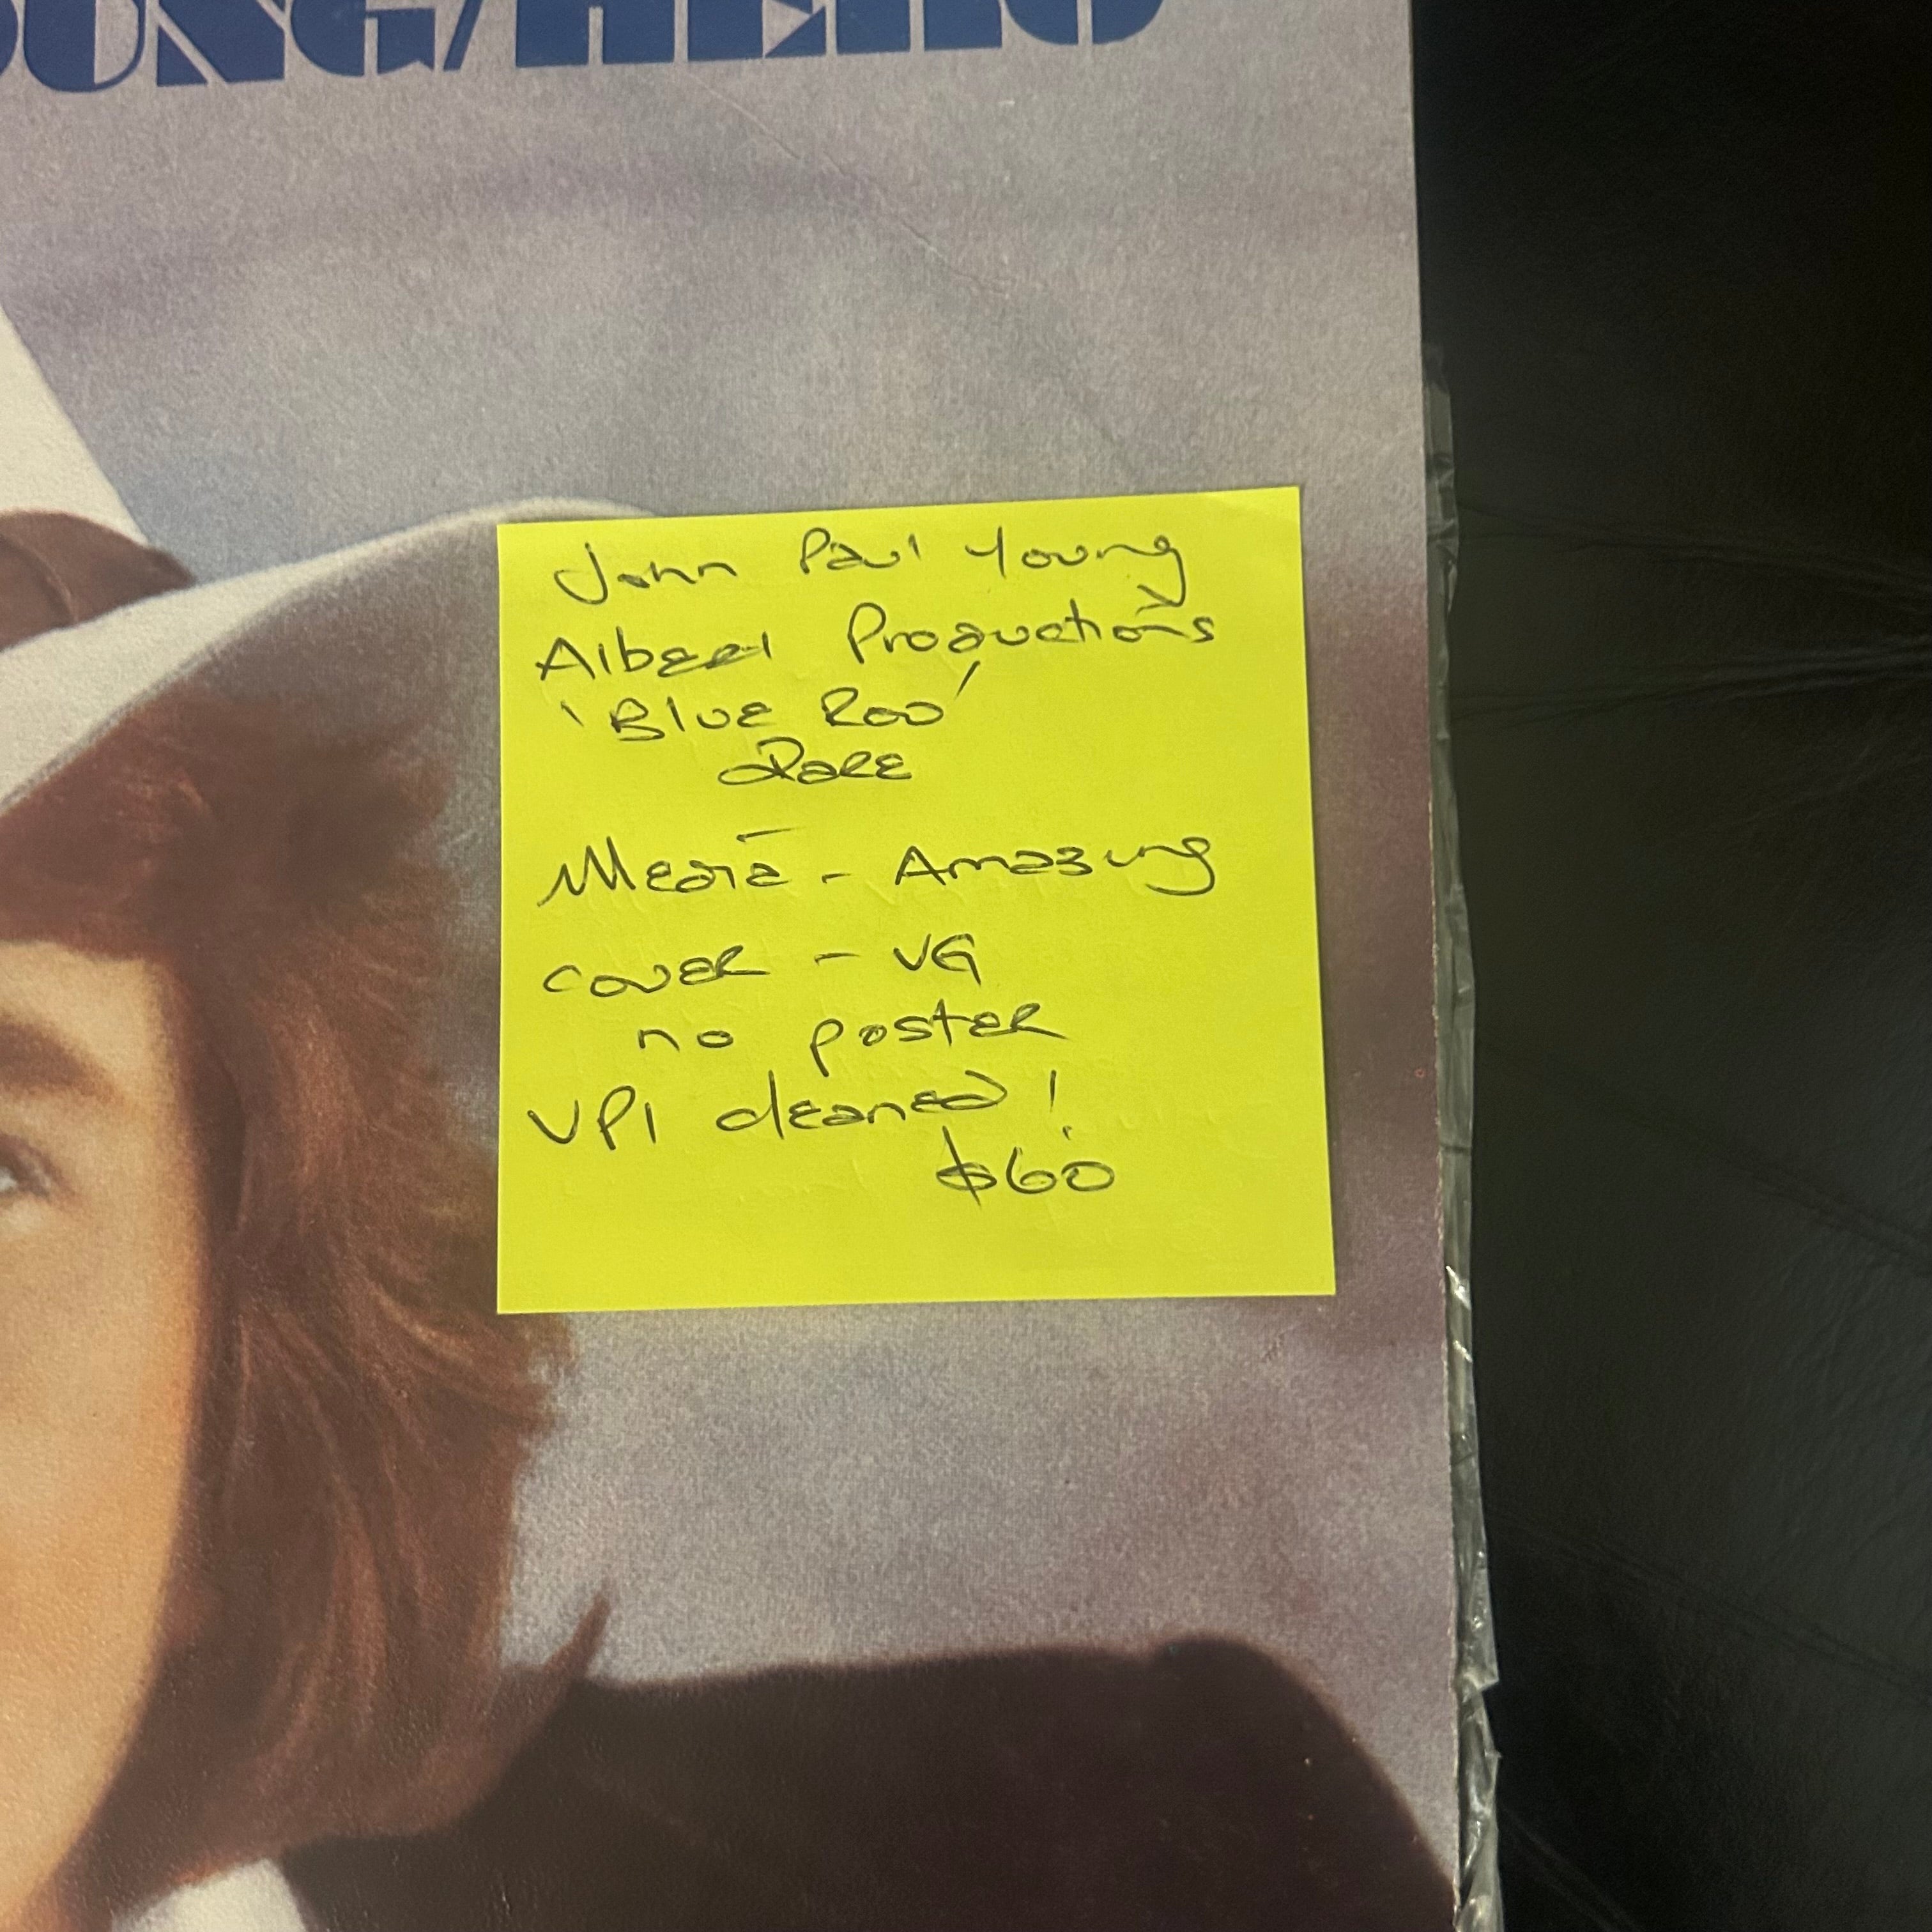 OUNG/HERO
John Paul Young
Albert Productions
'Blue Roo'
Rare
Media - Amazing
cover - VG
no poster
VPI cleaned!
$60